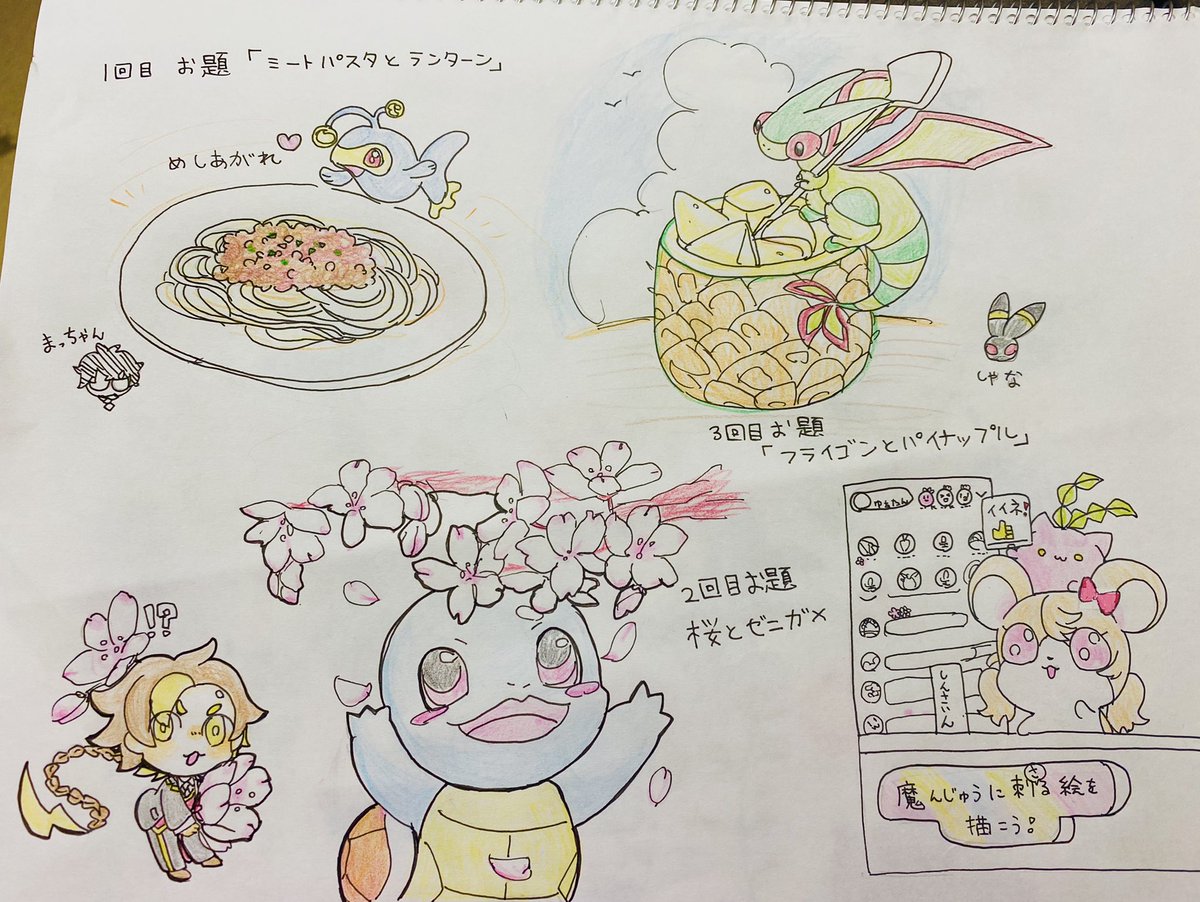 1回目 お題「ミートパスタとランターン」
めしあがれ
まっちゃん
しゃな
3回目お題
「フライゴンとパイナップル」
2回目お題
桜とゼニガメ
!?
ゆぁたん
イイネ!
しんさいん
魔んじゅうに刺さる絵を
描こう。